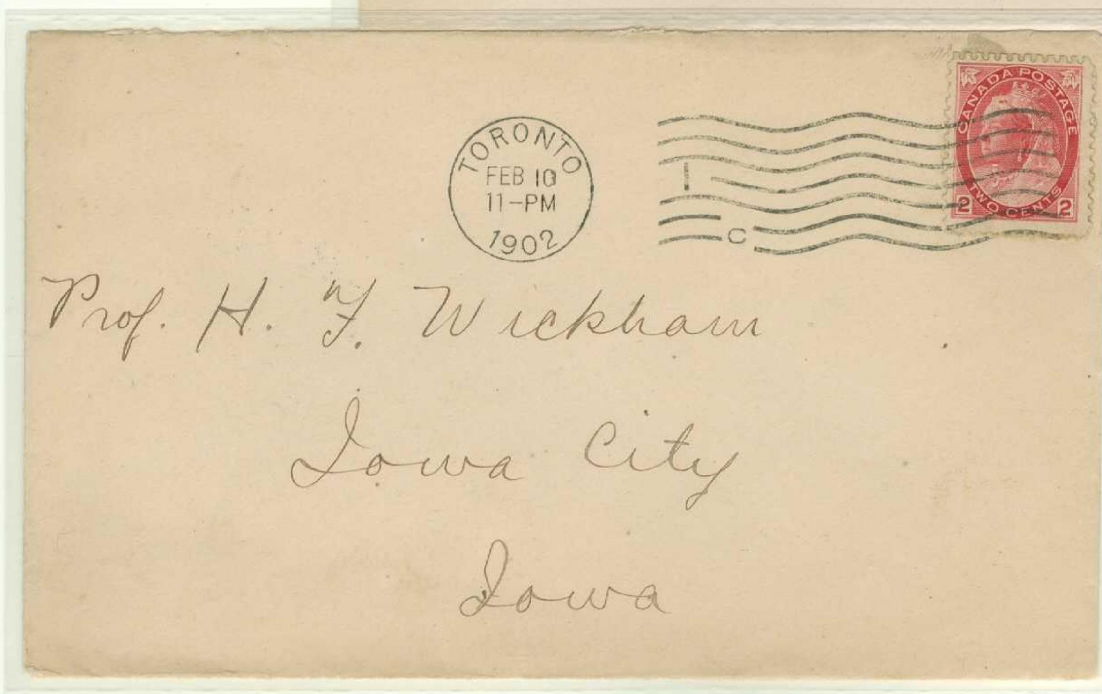 TORONTO
FEB 10
11-PM
1902
I
C
CANADA POSTAGE
2 TWO CENTS 2
Prof. H. F. Wickham
Iowa City
Iowa